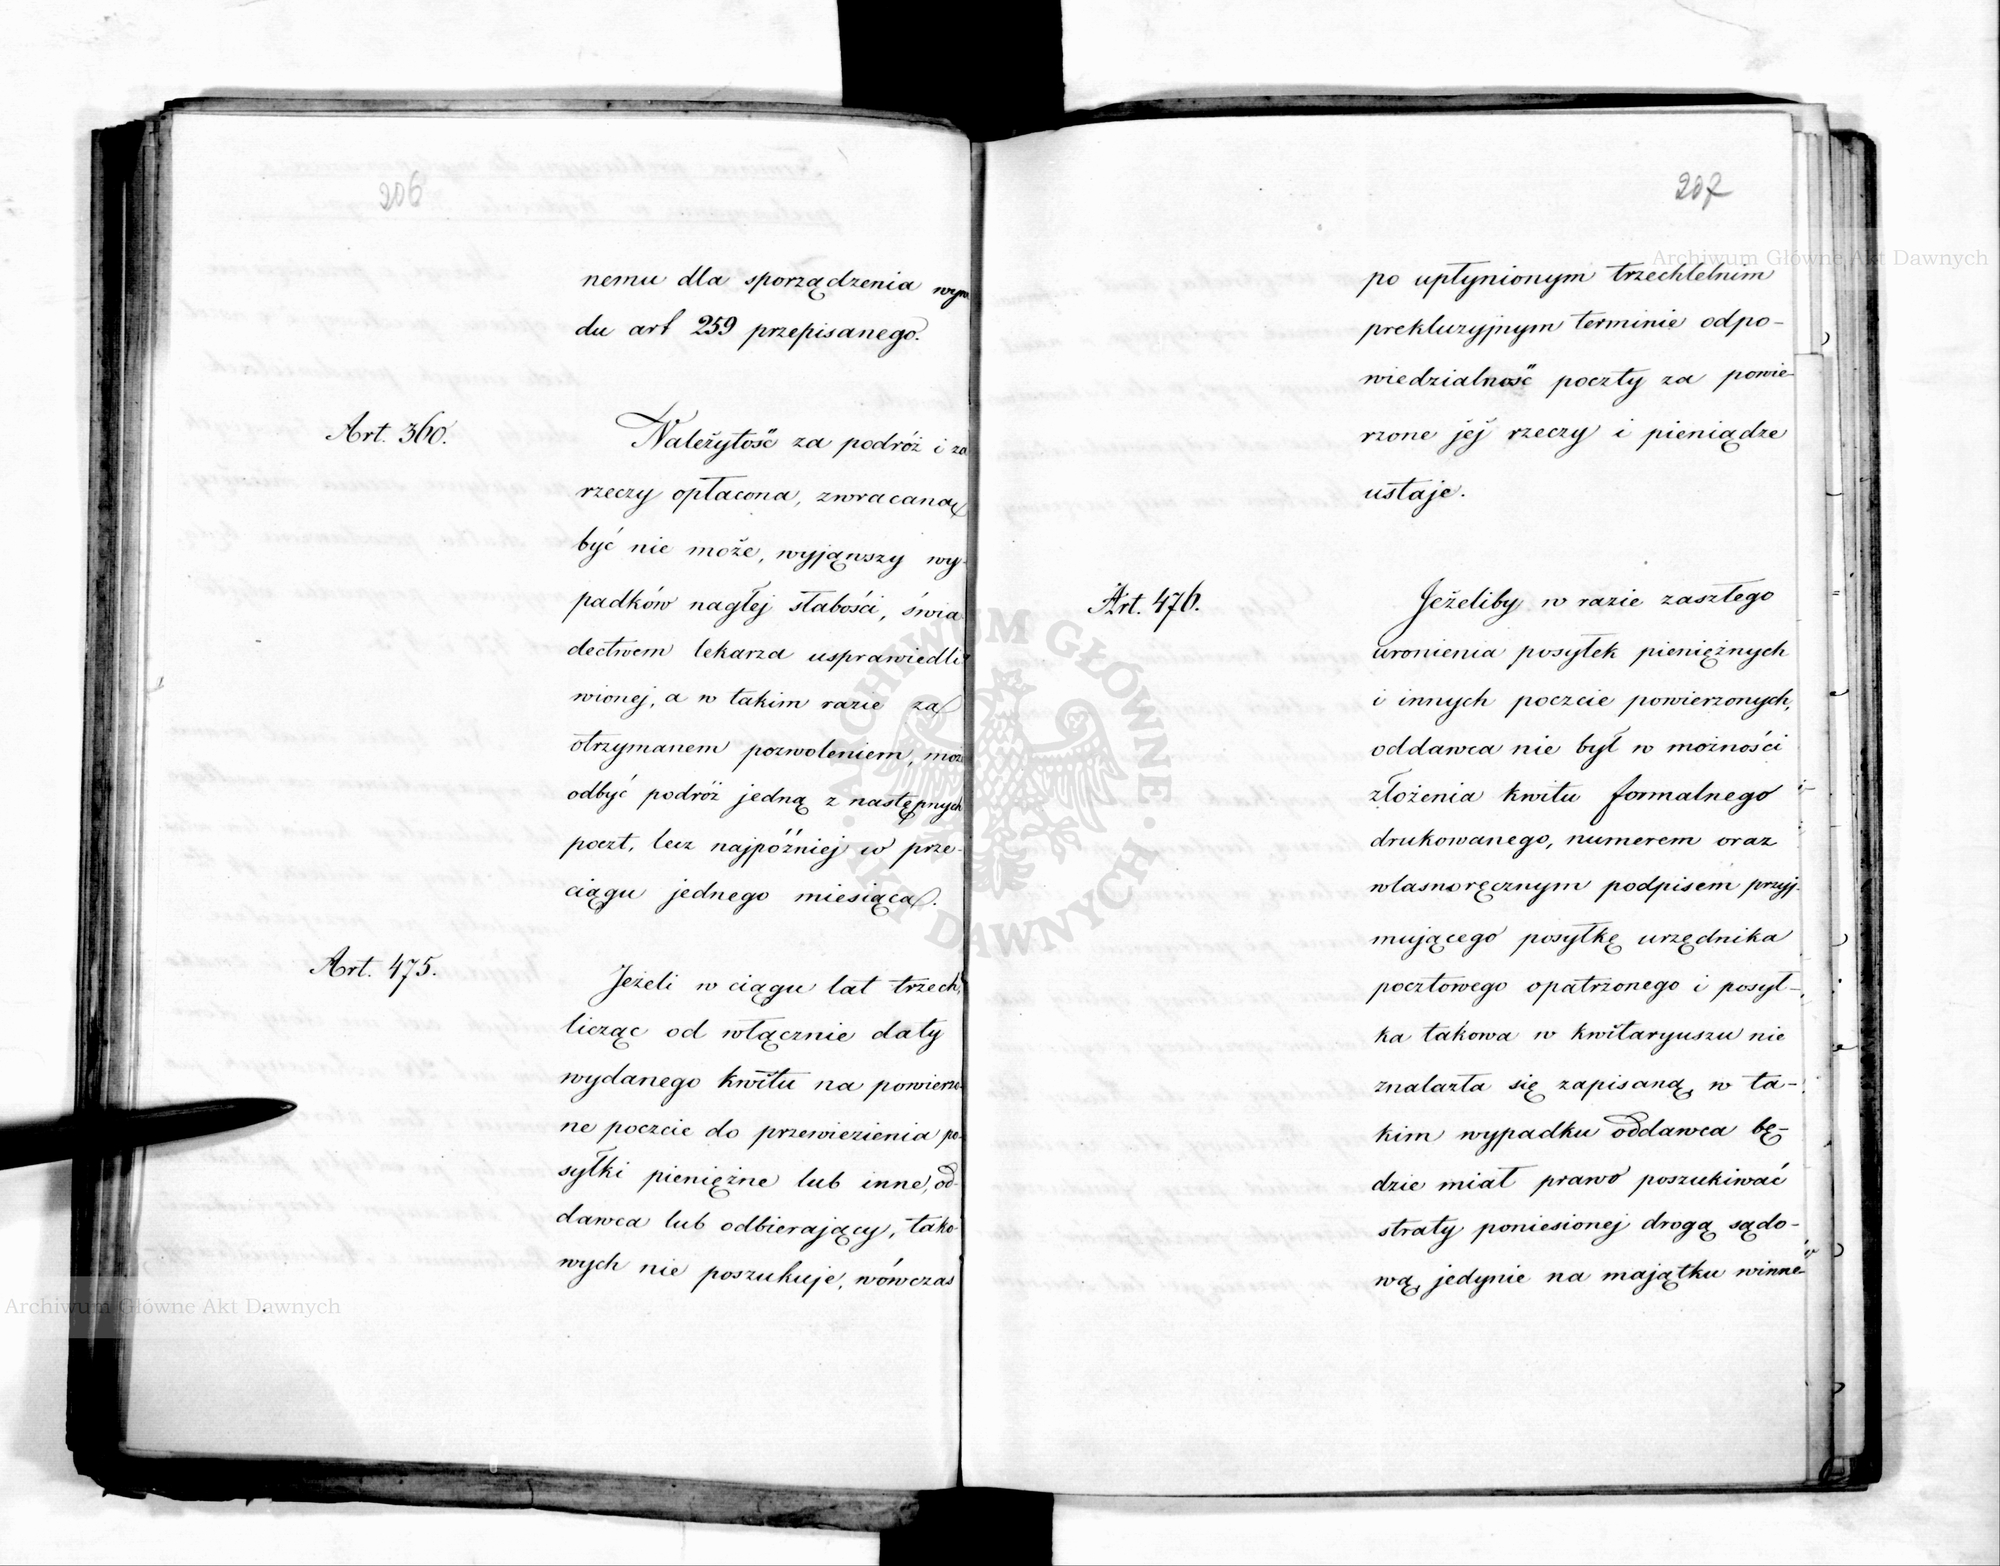 206
nemu dla sporządzenia wyw
du art 259 przepisanego.
Art. 360.
Należytość za podróż i za
rzeczy opłacona, zwracaną
być nie może, wyjąwszy wy-
padków nagłej słabości, świa
dectwem lekarza usprawiedli
wionej, a w takim razie za
otrzymanem pozwoleniem, moż
odbyć podróż jedną z następnych
poczt, lecz najpóźniej w prze-
ciągu jednego miesiąca.
Art. 475.
Jeżeli w ciągu lat trzech,
licząc od włącznie daty
wydanego kwitu na powierzo-
ne poczcie do przewiezienia po-
syłki pieniężne lub inne, od-
dawca lub odbierający, tako
wych nie poszukuje, wówczas
207
po upłynionym trzechletnim
prekluzyjnym terminie odpo-
wiedzialność poczty za powie-
rzone jej rzeczy i pieniądze
ustaje.
Art. 476.
Jeżeliby w razie zaszłego
uronienia posyłek pieniężnych
i innych poczcie powierzonych,
oddawca nie był w możności
złożenia kwitu formalnego
drukowanego, numerem oraz
własnoręcznym podpisem przyj-
mującego posyłkę urzędnika
pocztowego opatrzonego i posył-
ka takowa w kwitaryuszu nie
znalazła się zapisaną, w ta-
kim wypadku oddawca bę-
dzie miał prawo poszukiwać
straty poniesionej drogą sądo-
wą, jedynie na majątku winne-
Archiwum Główne Akt Dawnych
Archiwum Główne Akt Dawnych
ARCHIWUM GŁÓWNE AKT DAWNYCH